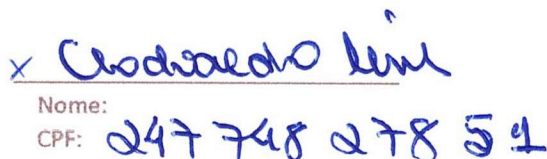 x Clodoaldo Lima
Nome:
CPF: 247 748 278 51